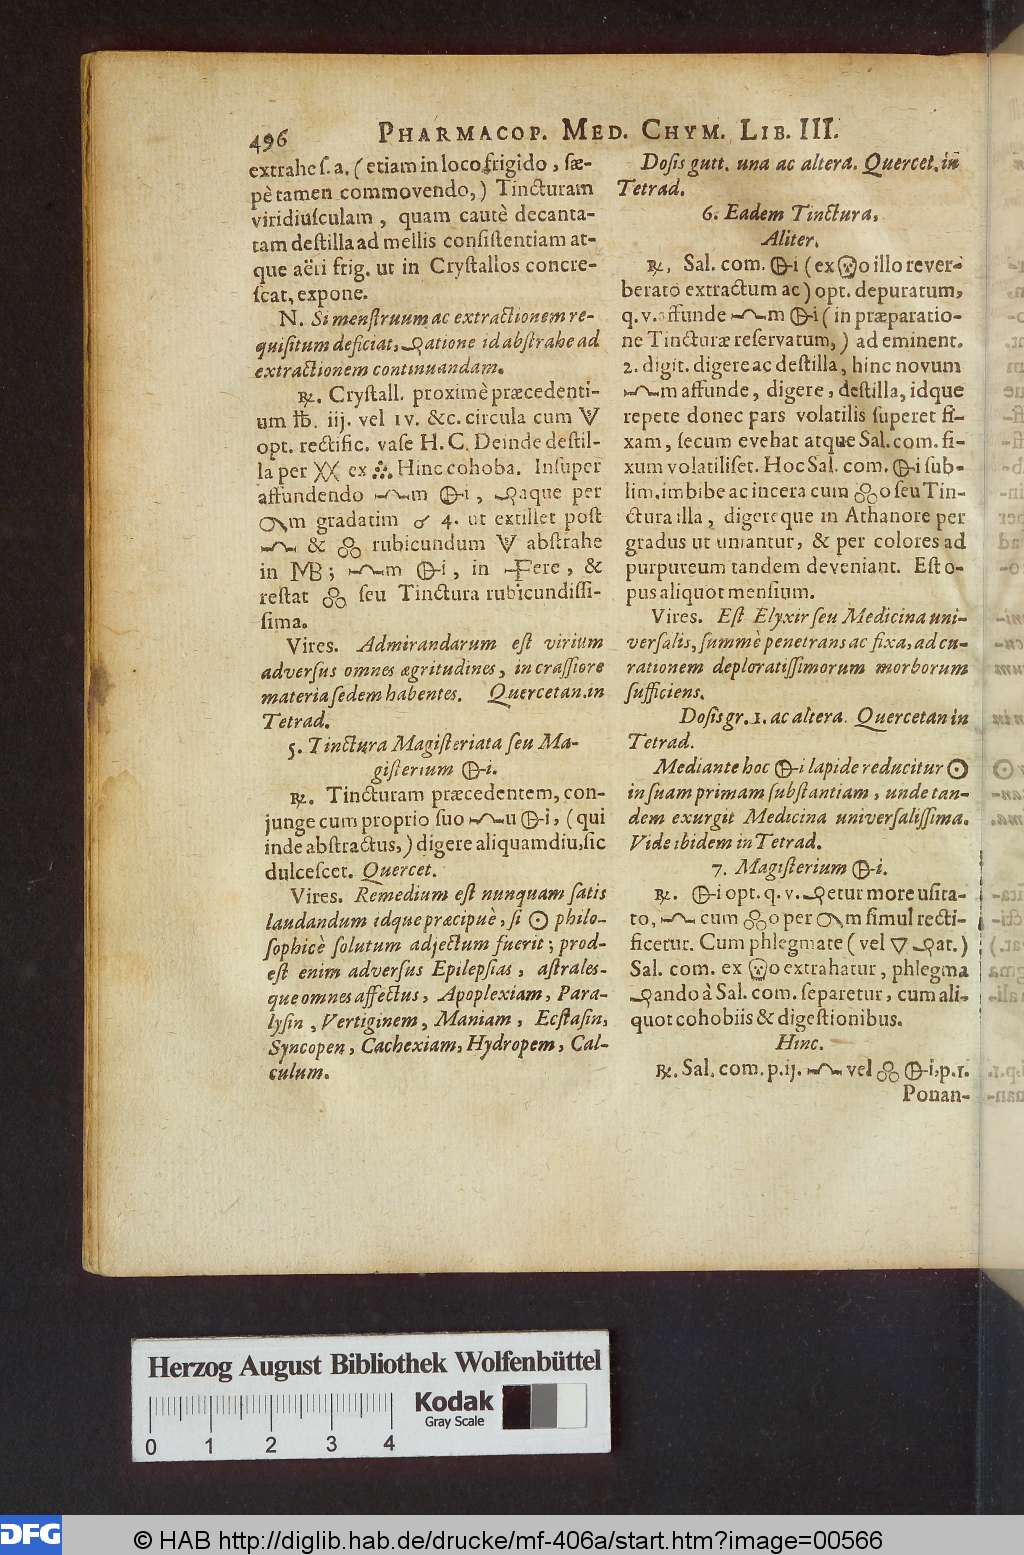 496
PHARMACOP. MED. CHYM. LIB. III.
extrahe ſ. a. (etiam in loco frigido, ſæ-
pè tamen commovendo,) Tincturam
viridiuſculam, quam cautè decanta-
tam deſtilla ad mellis conſiſtentiam at-
que aëri frig. ut in Cryſtallos concre-
ſcat, expone.
N. Si menſtruum ac extractionem re-
quiſitum deficiat, atione id abſtrahe ad
extractionem continuandam.
℞. Cryſtall. proximè præcedenti-
um ℔. iij. vel iv. &c. circula cum
opt. rectific. vaſe H. C. Deinde deſtil-
la per XX ex Hinc cohoba. Inſuper
affundendo m i, aque per
m gradatim 4. ut extillet poſt
& rubicundum abſtrahe
in MB; m i, in ere, &
reſtat ſeu Tinctura rubicundiſſi-
ſima.
Vires. Admirandarum eſt virium
adverſus omnes ægritudines, in craſſiore
materia ſedem habentes. Quercetan. in
Tetrad.
5. Tinctura Magiſteriata ſeu Ma-
giſterium i.
℞. Tincturam præcedentem, con-
junge cum proprio ſuo u i, (qui
inde abſtractus,) digere aliquamdiu, ſic
dulceſcet. Quercet.
Vires. Remedium eſt nunquam ſatis
laudandum idque præcipuè, ſi ☉ philo-
ſophicè ſolutum adjectum fuerit; prod-
eſt enim adverſus Epilepſias, aſtrales-
que omnes affectus, Apoplexiam, Para-
lyſin, Vertiginem, Maniam, Ecſtaſin,
Syncopen, Cachexiam, Hydropem, Cal-
culum.
Doſis gutt. una ac altera. Quercet. in
Tetrad.
6. Eadem Tinctura,
Aliter.
℞. Sal. com. i (ex o illo rever-
berato extractum ac) opt. depuratum,
q. v. affunde m i (in præparatio-
ne Tincturæ reſervatum,) ad eminent.
2. digit. digere ac deſtilla, hinc novum
m affunde, digere, deſtilla, idque
repete donec pars volatilis ſuperet fi-
xam, ſecum evehat atque Sal. com. fi-
xum volatiliſet. Hoc Sal. com. i ſub-
lim. imbibe ac incera cum o ſeu Tin-
ctura illa, digereque in Athanore per
gradus ut uniantur, & per colores ad
purpureum tandem deveniant. Eſt o-
pus aliquot menſium.
Vires. Eſt Elyxir ſeu Medicina uni-
verſalis, ſummè penetrans ac fixa, ad cu-
rationem deploratiſſimorum morborum
ſufficiens.
Doſis gr. 1. ac altera. Quercetan in
Tetrad.
Mediante hoc i lapide reducitur ☉
in ſuam primam ſubſtantiam, unde tan-
dem exurgit Medicina univerſaliſſima.
Vide ibidem in Tetrad.
7. Magiſterium i.
℞. i opt. q. v. etur more uſita-
to, cum o per m ſimul recti-
ficetur. Cum phlegmate (vel ▽ at.)
Sal. com. ex o extrahatur, phlegma
ando à Sal. com. ſeparetur, cum ali-
quot cohobiis & digeſtionibus.
Hinc.
℞. Sal. com. p. ij. vel i, p. 1.
Ponan-
Herzog August Bibliothek Wolfenbüttel
0 1 2 3 4
Kodak
Gray Scale
DFG
© HAB http://diglib.hab.de/drucke/mf-406a/start.htm?image=00566